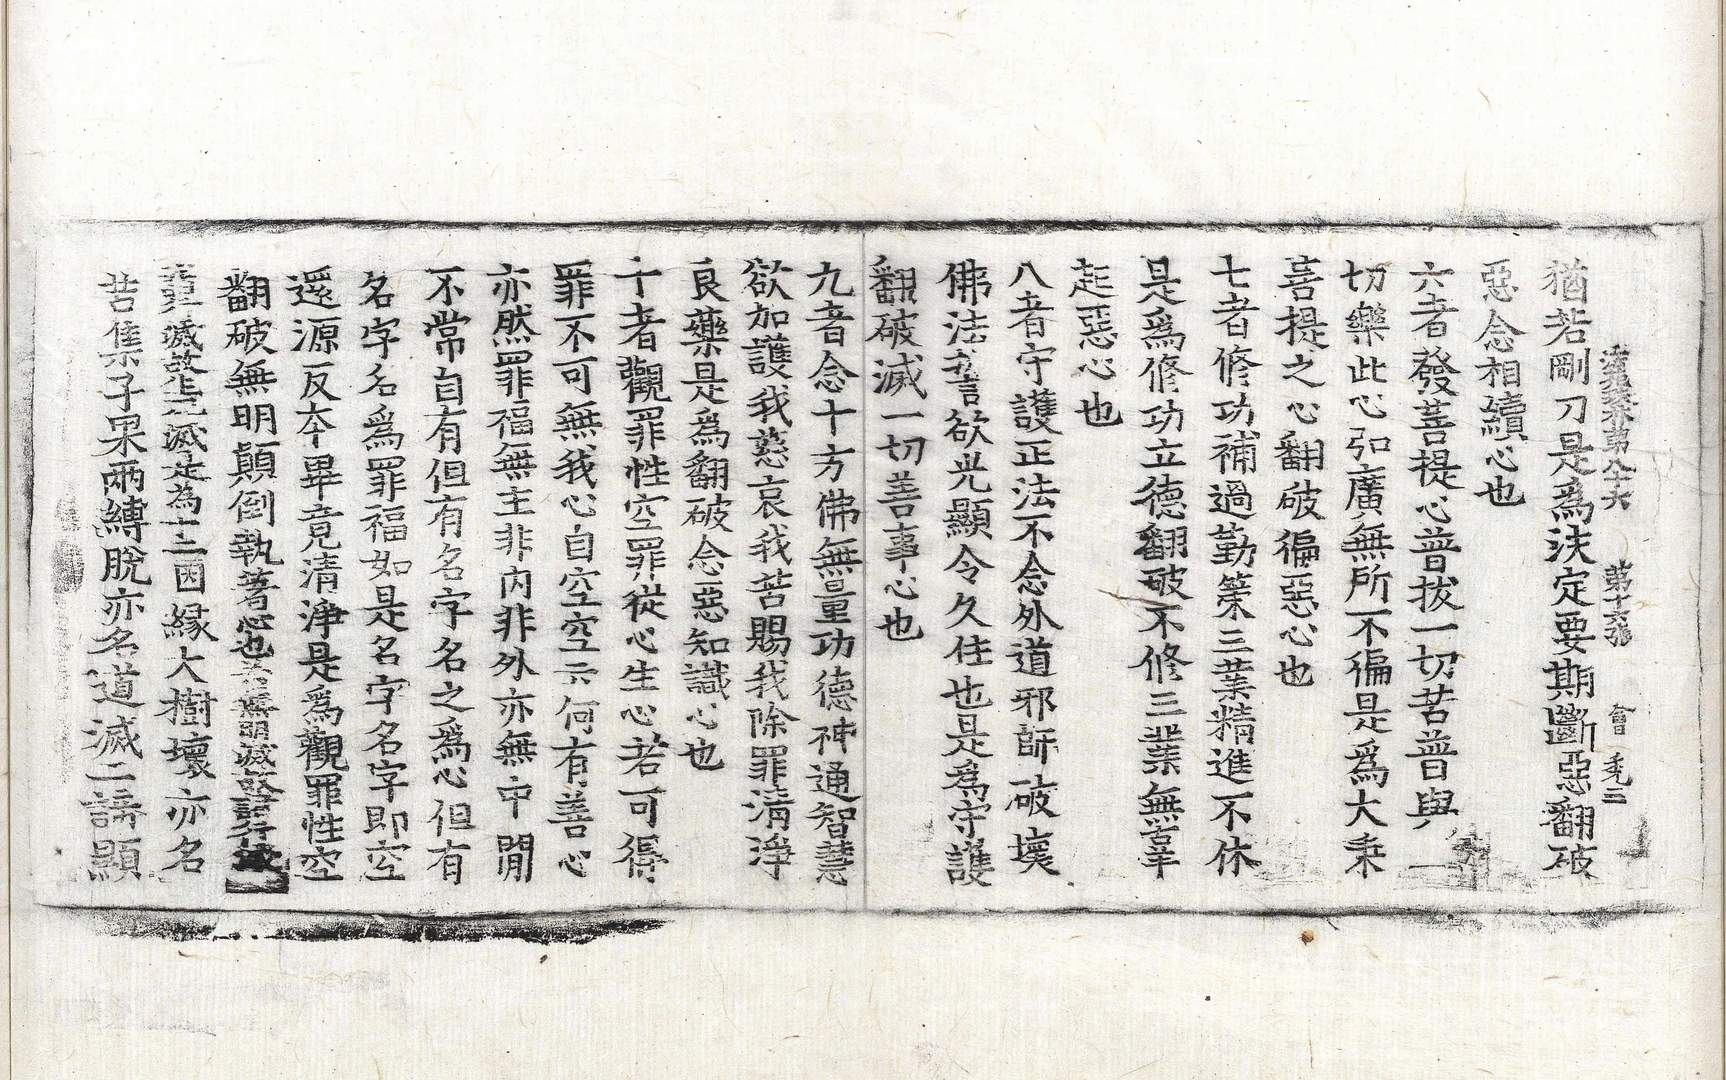 法苑珠林第八十六 第十六張 會 禿三
猶若剛刀是爲決定要期斷惡翻破
惡念相續心也
六者發菩提心普拔一切苦普與一
切樂此心弘廣無所不徧是爲大乘
菩提之心翻破徧惡心也
七者修功補過勤策三業精進不休
是爲修功立德翻破不修三業無辜
起惡心也
八者守護正法不念外道邪師破壞
佛法誓欲光顯令久住也是爲守護
翻破滅一切善事心也
九者念十方佛無量功德神通智慧
欲加護我慈哀我苦賜我除罪清淨
良藥是爲翻破念惡知識心也
十者觀罪性空罪從心生心若可得
罪不可無我心自空空云何有善心
亦然罪福無主非內非外亦無中間
不常自有但有名字名之爲心但有
名字名爲罪福如是名字名字即空
還源反本畢竟清淨是爲觀罪性空
翻破無明顛倒執著心也若無明滅故諸行滅
滅故生死滅是為十二因緣大樹壞亦名
苦集子果兩縛脫亦名道滅二諦顯